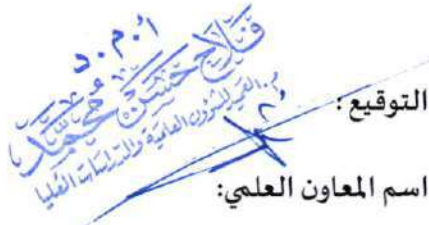 أ.م.د
فلاح حسن محمد
م. العميد للشؤون العلمية والدراسات العليا
التوقيع :
اسم المعاون العلمي: